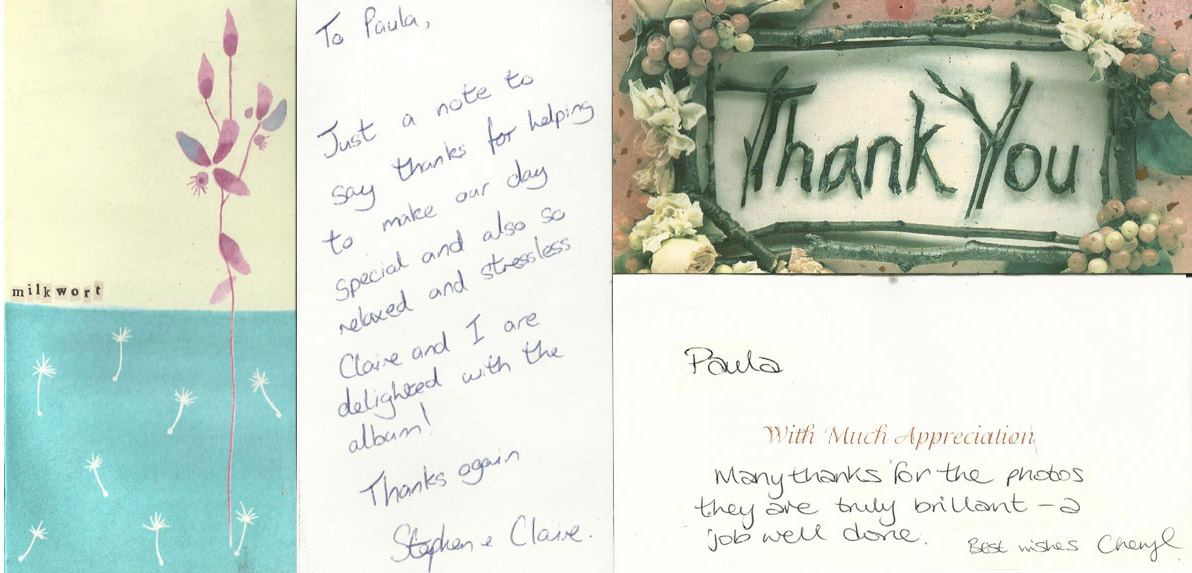 milkwort
To Paula,
Just a note to
say thanks for helping
to make our day
special and also so
relaxed and stressless
Claire and I are
delighted with the
album!
Thanks again
Stephen & Claire.
Thank You
Paula
With Much Appreciation
Many thanks for the photos
they are truly brillant – a
job well done.
Best wishes Cheryl